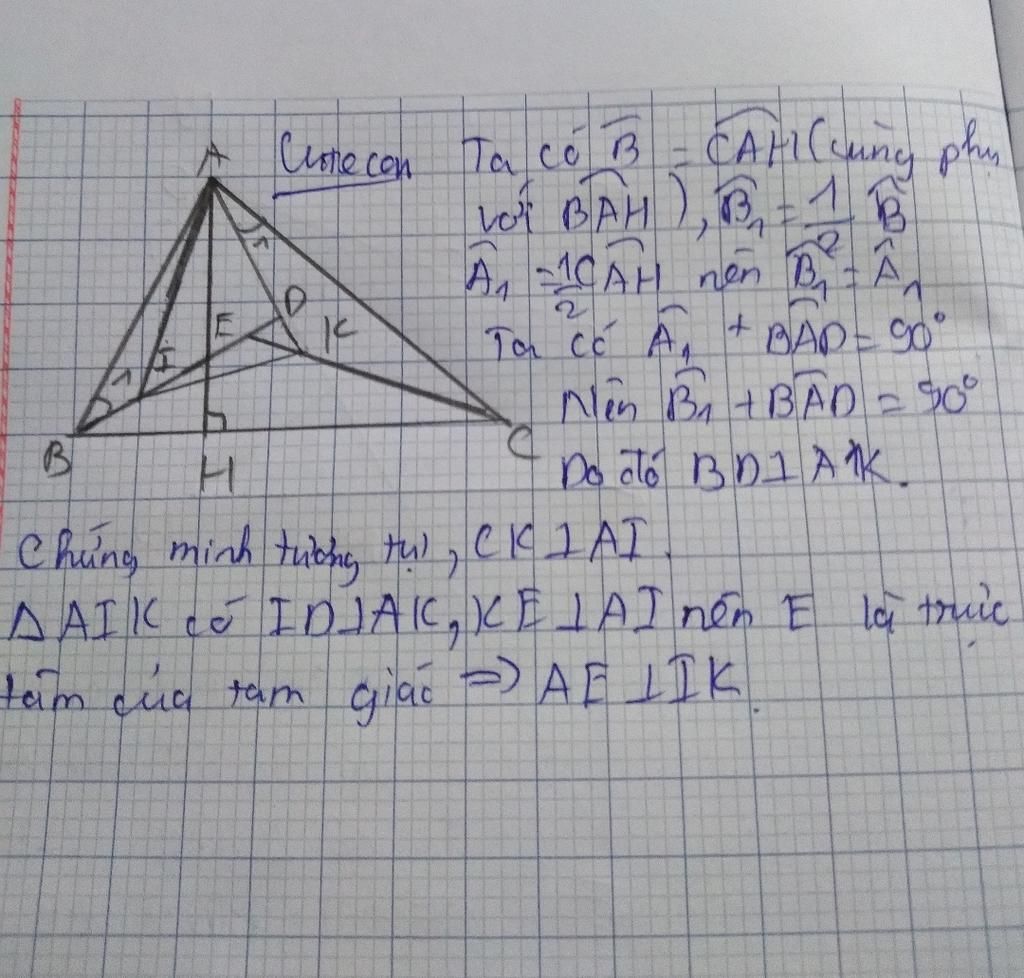 A
Ta có B̂ = CAH (cùng phụ
với BAH), B̂₁ = 1/2 B̂
Â₁ = 1/2 CAH nên B̂₁ = Â₁
Ta có Â₁ + BAD = 90°
Nên B̂₁ + BAD = 90°
Do đó BD⊥AK.
1
D
E
K
I
1
B
H
C
Chứng minh tương tự, CK⊥AI.
Δ AIK có ID⊥AK, KE⊥AI nên E là trực
tâm của tam giác => AE⊥IK.